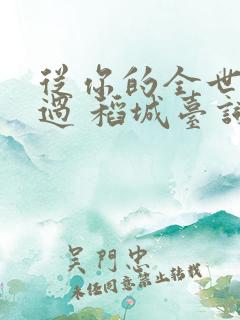 從你的全世
過 稻城臺詞
吳門忠
未经同意禁止转载